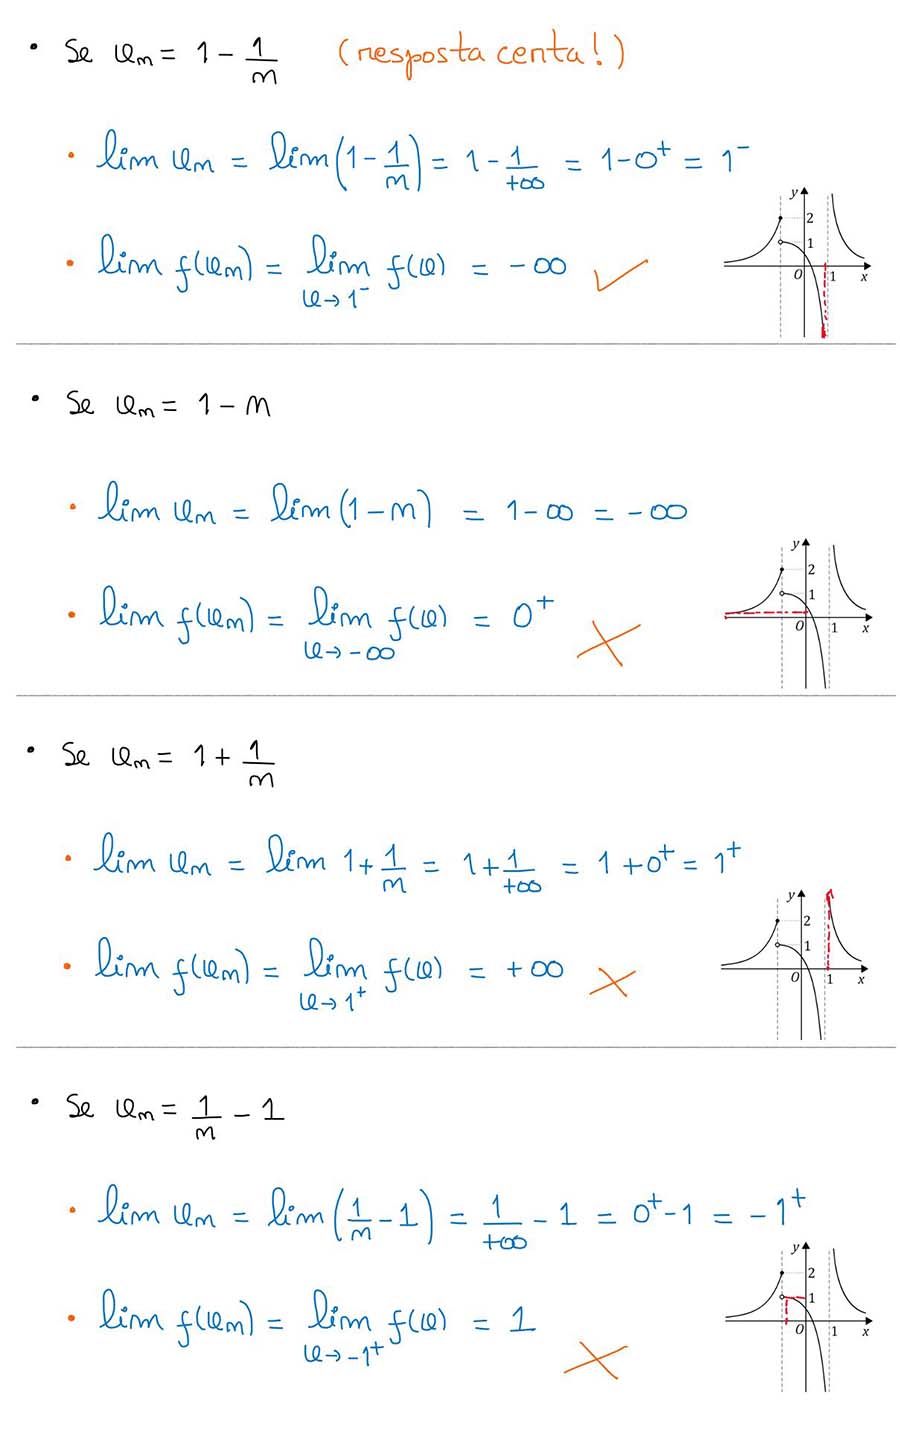 • Se uₙ = 1 - 1/n (resposta certa!)
• lim uₙ = lim(1 - 1/n) = 1 - 1/+∞ = 1 - 0⁺ = 1⁻
• lim f(uₙ) = lim f(u) = -∞ ✓
u→1⁻
y
2
1
O 1 x
• Se uₙ = 1 - n
• lim uₙ = lim(1 - n) = 1 - ∞ = -∞
• lim f(uₙ) = lim f(u) = 0⁺ ×
u→-∞
y
2
1
O 1 x
• Se uₙ = 1 + 1/n
• lim uₙ = lim 1 + 1/n = 1 + 1/+∞ = 1 + 0⁺ = 1⁺
• lim f(uₙ) = lim f(u) = +∞ ×
u→1⁺
y
2
1
O 1 x
• Se uₙ = 1/n - 1
• lim uₙ = lim(1/n - 1) = 1/+∞ - 1 = 0⁺ - 1 = -1⁺
• lim f(uₙ) = lim f(u) = 1 ×
u→-1⁺
y
2
1
O 1 x